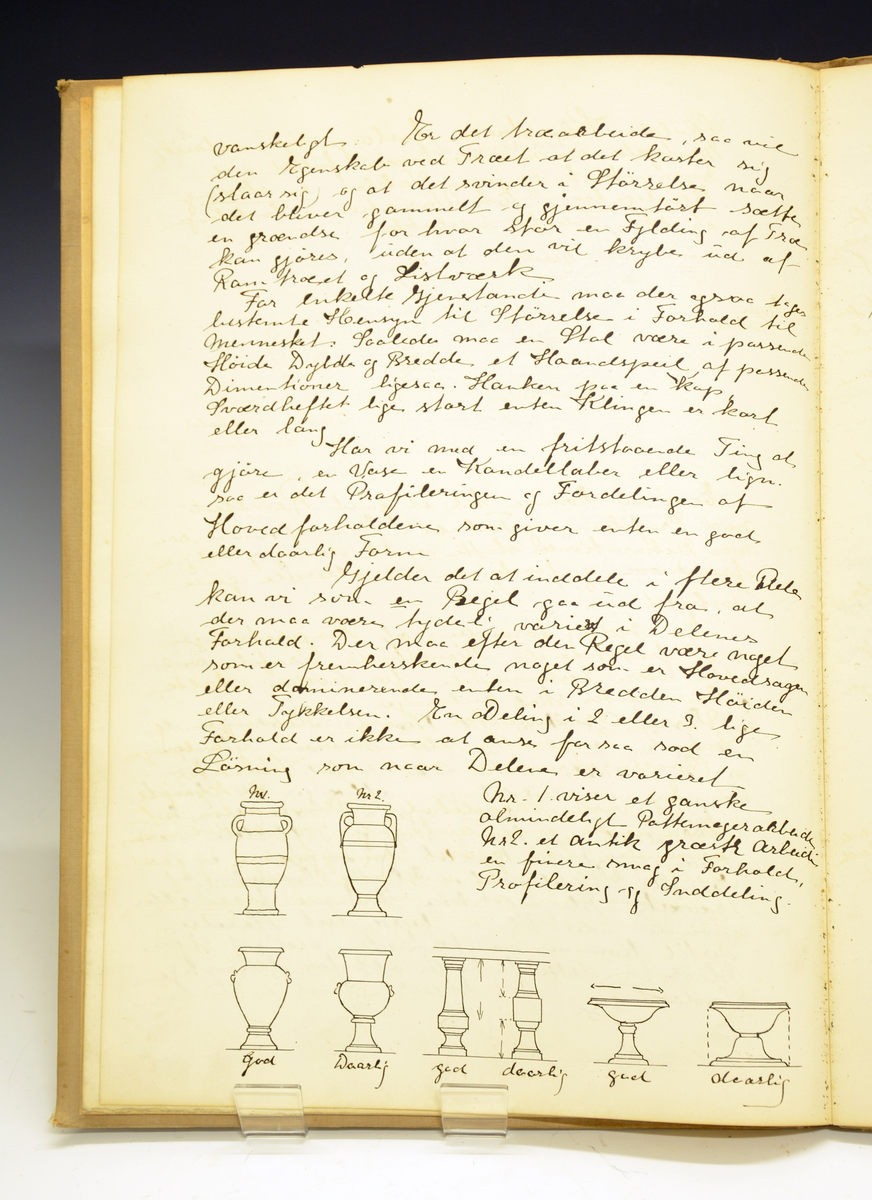 vanskeligt. Er det træarbeide, saa vil
den Egenskab ved Træet at det kaster sig
(slaar sig) og at det svinder i Störrelse naar
det bliver gammelt og gjennemtört sætte
en grændse for hvor stor en Fylding af Træ
kan gjöres, uden at den vil krybe ud af
Ramtræet og Listværk
For enkelte Gjenstande maa der ogsaa tages
bestemte Hensyn til Störrelse i Forhold til
Mennesket. Saaledes maa en Stol være i passende
Höide Dybde og Bredde et Haandspeil af passende
Dimentioner ligesaa. Hanken paa en Kop,
Sværdheftet lige stort enten Klingen er kort
eller lang
Har vi med en fritstaaende Ting at
gjöre, en Vase en Kandellaber eller lign.
saa er det Profileringen og Fordelingen af
Hovedforholdene som giver enten en god
eller daarlig Form
Gjelder det at inddele i flere Dele
kan vi som en Regel gaa ud fra, at
der maa være tydeli variert i Delenes
Forhold. Der maa efter den Regel være noget
som er fremherskende noget som er Hovedsagen
eller dominerende enten i Bredden Höiden
eller Tykkelsen. En Deling i 2 eller 3. lige
Forhold er ikke at anse for saa god en
Lösning som naar Delene er varieret
Nr. 1. viser et ganske
almindeligt Pottemagerarbeide
Nr 2. et antik græsk Arbeide
en finere smag i Forhold,
Profilering og Inddeling.
Nr 1.
Nr 2.
god
Daarlig
god
daarlig
god
daarlig